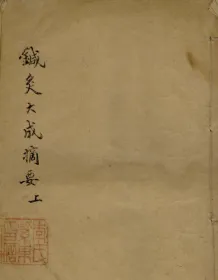 鍼灸大成摘要上